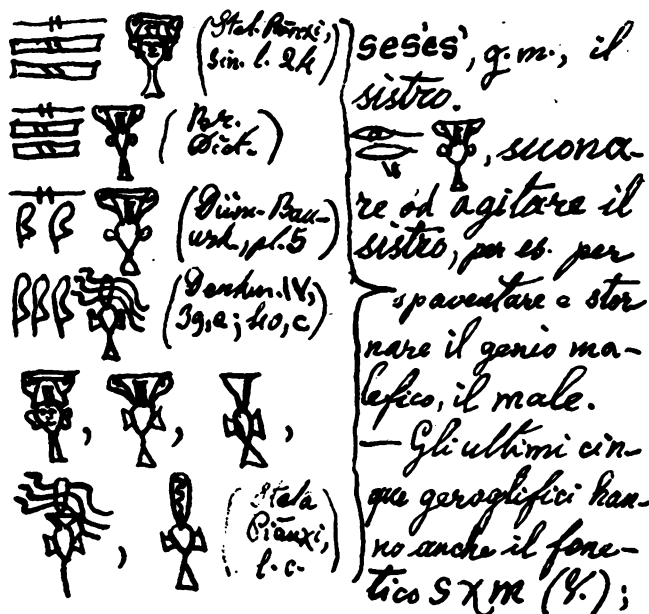 (Stel. Piānxi,
lin. l. 24)
(Par.
Dict.)
(Düm. Bau-
urk., pl. 5)
(Denkm. IV,
39, a; 40, c)
, , ,
, (Stela
Piānxi,
l. c.
ses'es', g. m., il
sistro.
, suona-
re od agitare il
sistro, per es. per
spaventare e stor
nare il genio ma-
lefico, il male.
— Gli ultimi cin-
que geroglifici han-
no anche il fone-
tico S χ m (V.);